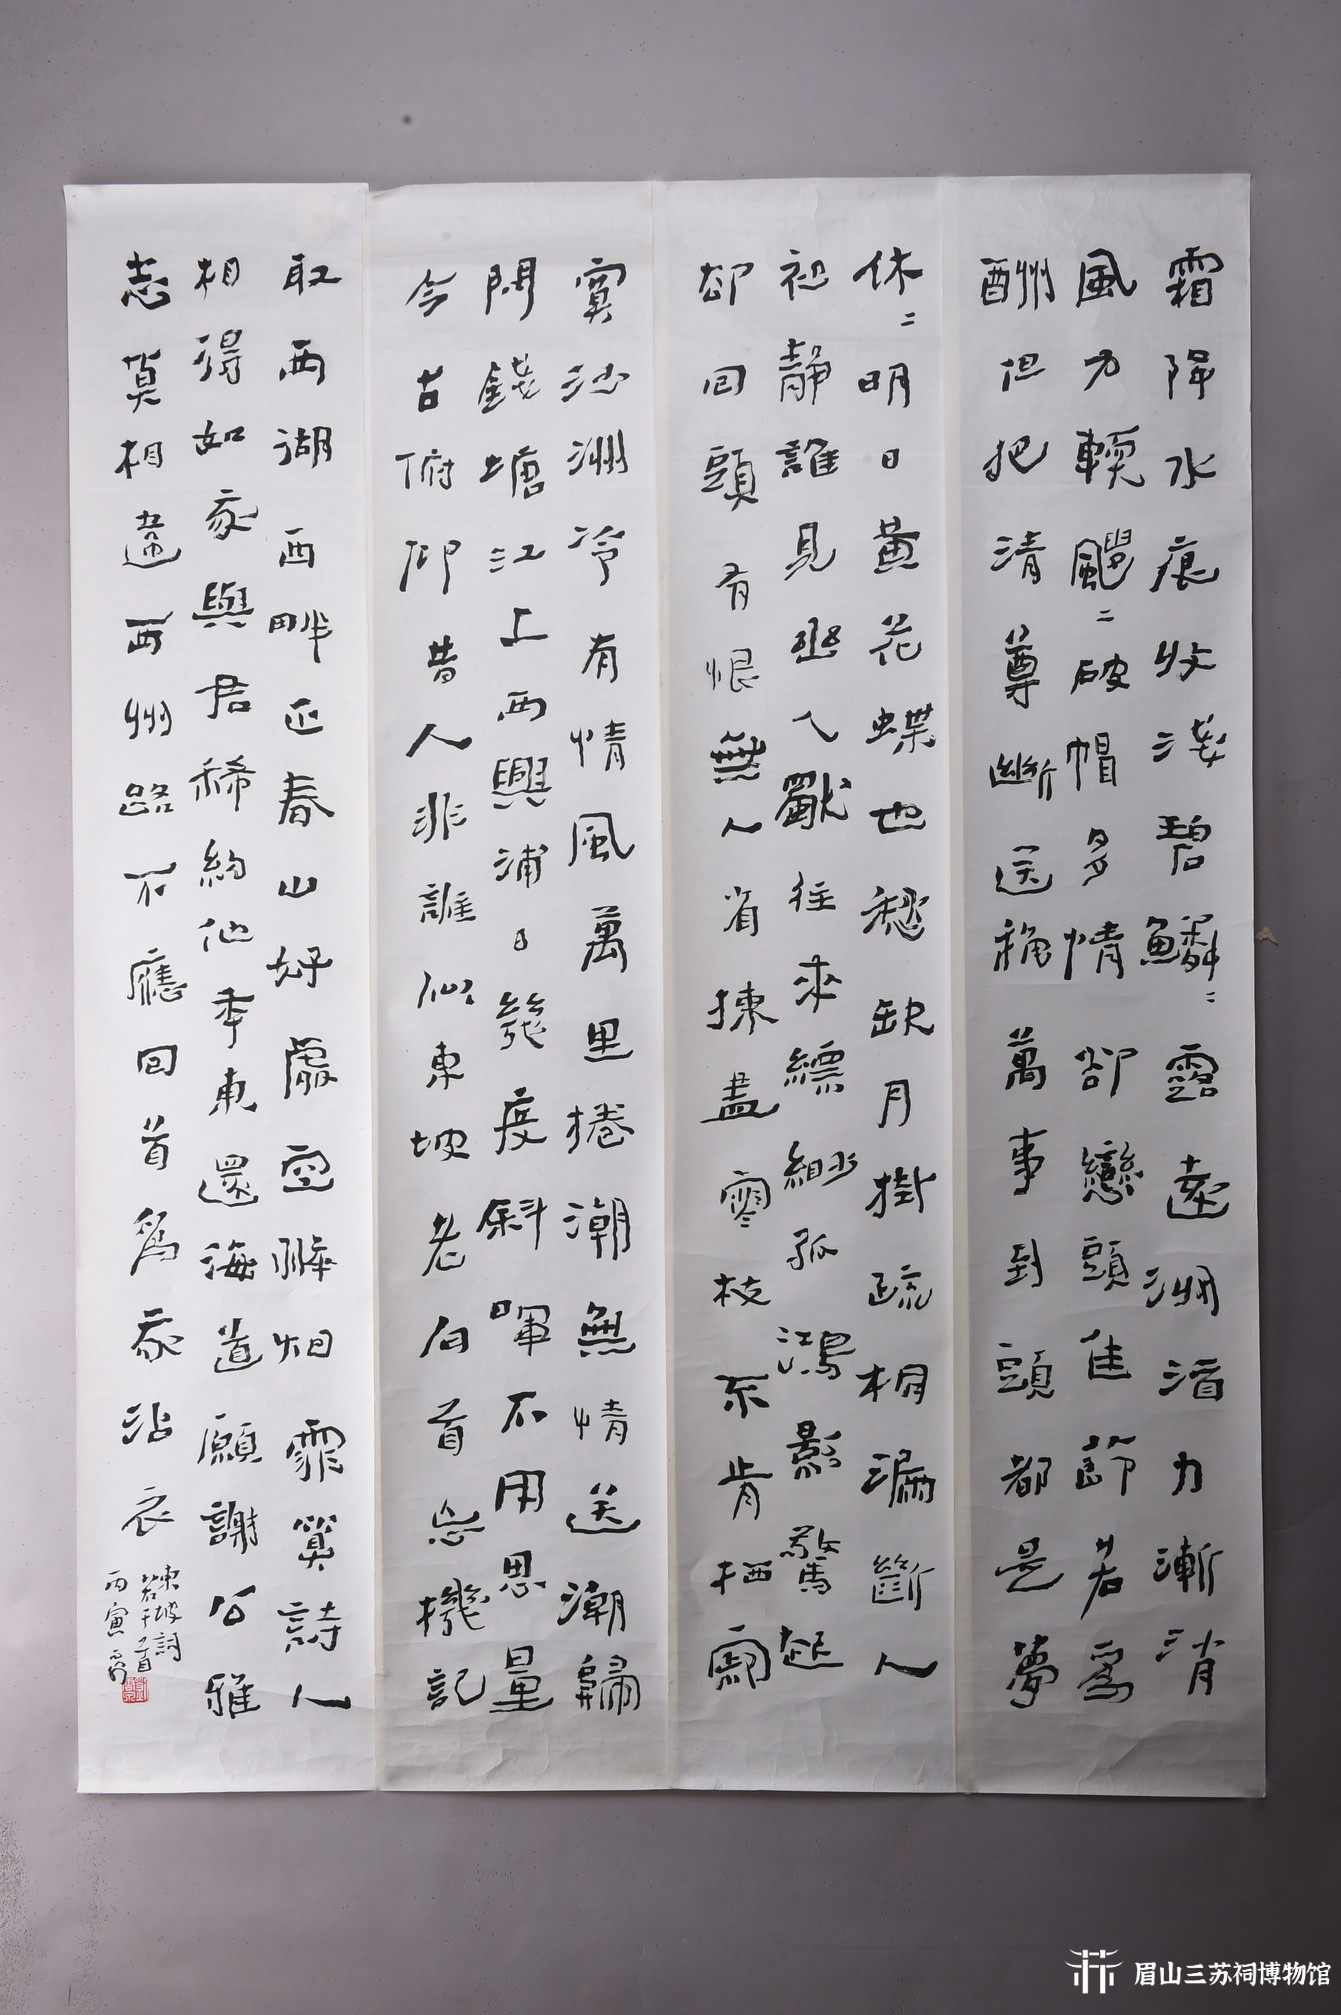 霜降水痕收淺碧鱗〻露遠洲酒力漸消
風力輭颼〻破帽多情卻戀頭佳節若爲
酬但把清尊斷送秋萬事到頭都是夢
休〻明日黃花蝶也愁缺月掛疏桐漏斷人
初靜誰見幽人獨往來縹緲孤鴻影驚起
却回頭有恨無人省揀盡寒枝不肯栖寂
寞沙洲冷有情風萬里捲潮無情送潮歸
問錢塘江上西興浦口幾度斜暉不用思量
今古俯仰昔人非誰似東坡老白首忘機記
取西湖西畔正春山好處空翠烟霏算詩人
相得如我與君稀約他年東還海道願謝公雅
志莫相違西州路不應回首爲我沾衣
東坡詞
若干首
丙寅
眉山三苏祠博物馆